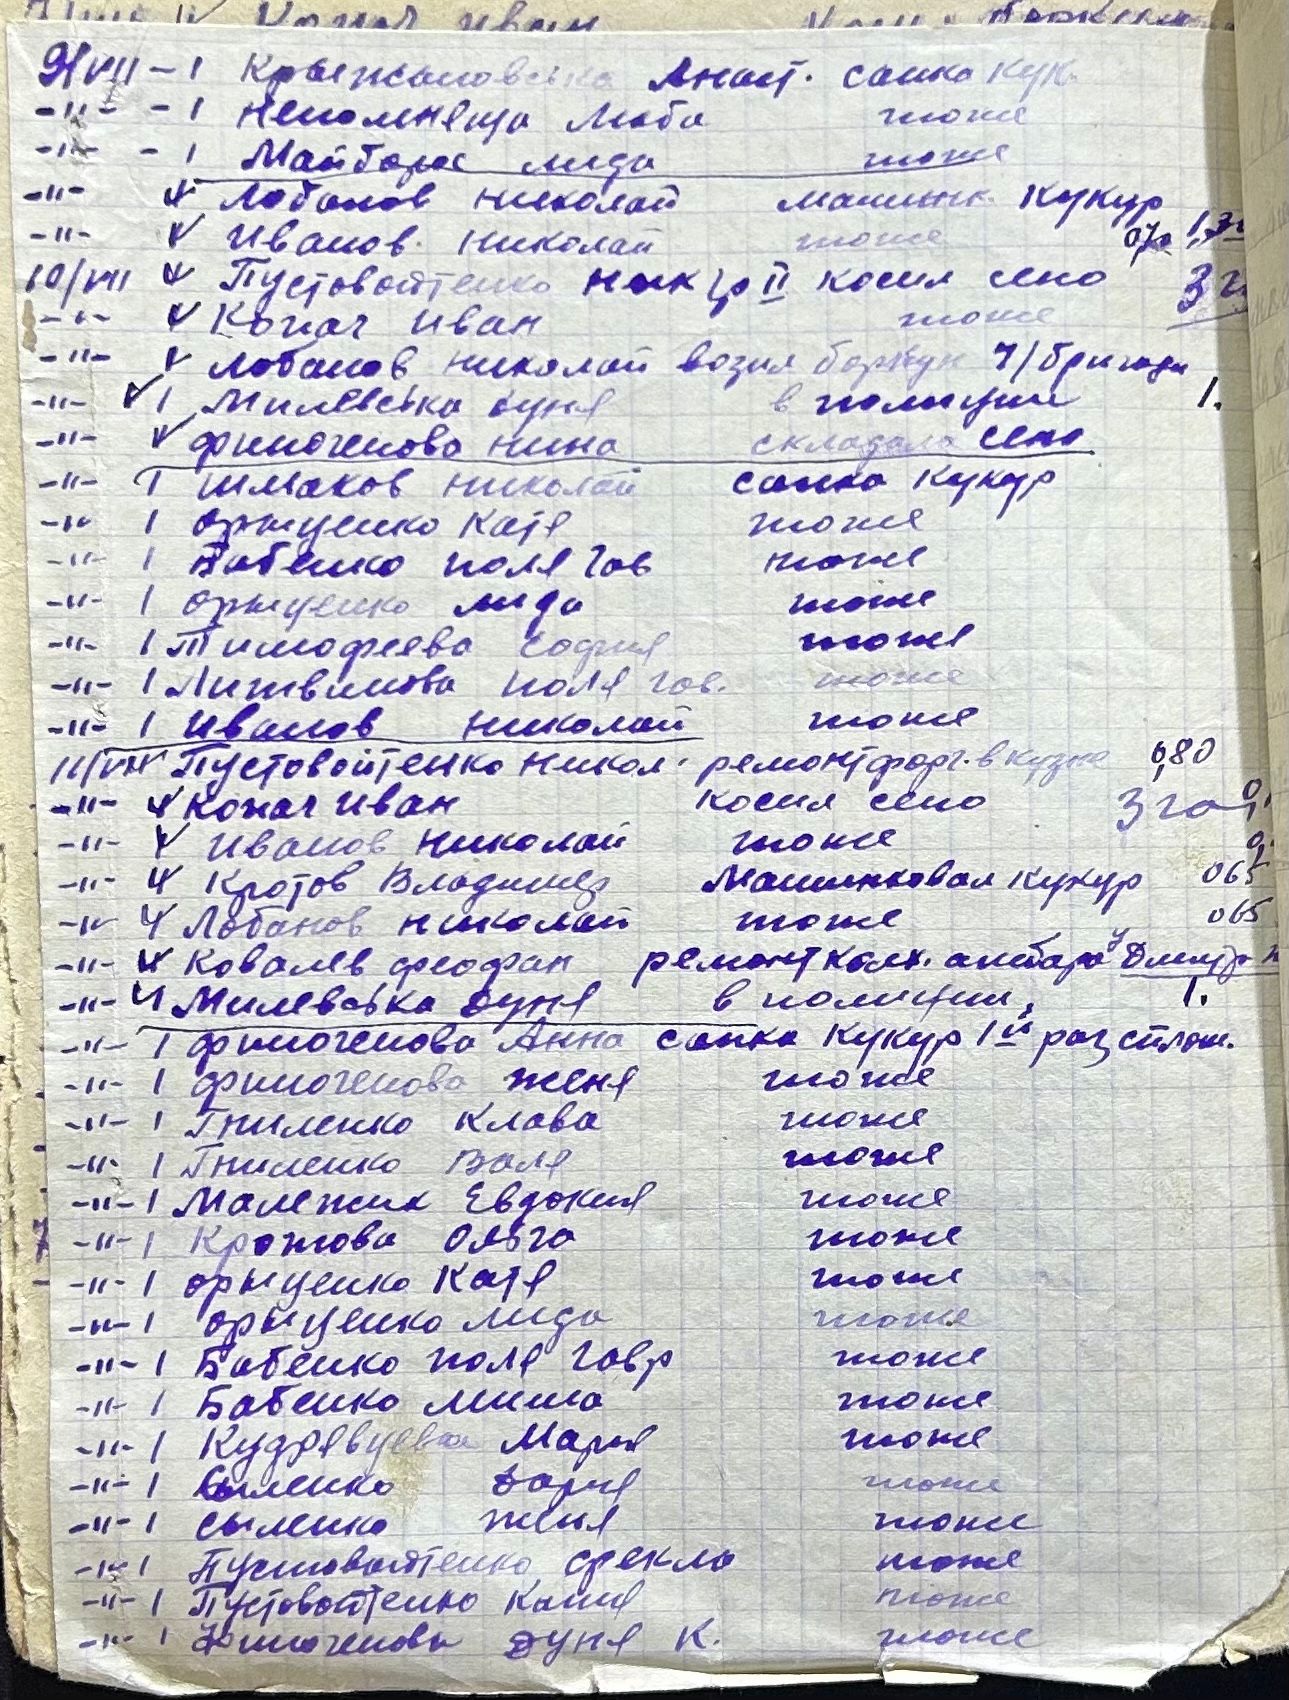 Конач Иван
9/VII - 1 Крыжановська Анаст. сапка кук.
-"- - 1 Непомняща Люба тоже
-"- - 1 Майборс лида тоже
-"- Лобанов николай машин. кукур
-"- Иванов николай тоже 070
10/VII Пустовойтенко ник гр II косил сено 3 г
-"- Конач Иван тоже
-"- лобанов николай возил 4/бригади
-"- 1 Милевська дуня в полиции 1.
-"- филоченова нина складала сено
-"- 1 шмаков николай сапка кукур
-"- 1 орыщенко Катя тоже
-"- 1 Бабенко поля Гав тоже
-"- 1 орыщенко лида тоже
-"- 1 Тимофеева софия тоже
-"- 1 Литвинова поля гав. тоже
-"- 1 Иванов николай тоже
11/VII Пустовойтенко никол. ремонт в кузне 0,80
-"- Конач Иван косил сено 3 га
-"- Иванов николай тоже
-"- Кротов Владимер Машинковал кукур 065
-"- Лобанов николай тоже 065
-"- Ковалев феофан ремонт колх. амбара
-"- Милевська дуня в полиции, 1.
-"- 1 филоченова Анна сапка кукур 1й раз сплош.
-"- 1 филоченова женя тоже
-"- 1 Гниленко Клава тоже
-"- 1 Гниленко Валя тоже
-"- 1 Малежик Евдокия тоже
-"- 1 Кротова Ольга тоже
-"- 1 орыщенко Катя тоже
-"- 1 орыщенко лида тоже
-"- 1 Бабенко поля Гавр тоже
-"- 1 Бабенко миша тоже
-"- 1 Кудрявцева Мария тоже
-"- 1 Сыленко дария тоже
-"- 1 сыленко женя тоже
-"- 1 Пустовойтенко фекла тоже
-"- 1 Пустовойтенко Катя тоже
-"- 1 филоченова дуня К. тоже